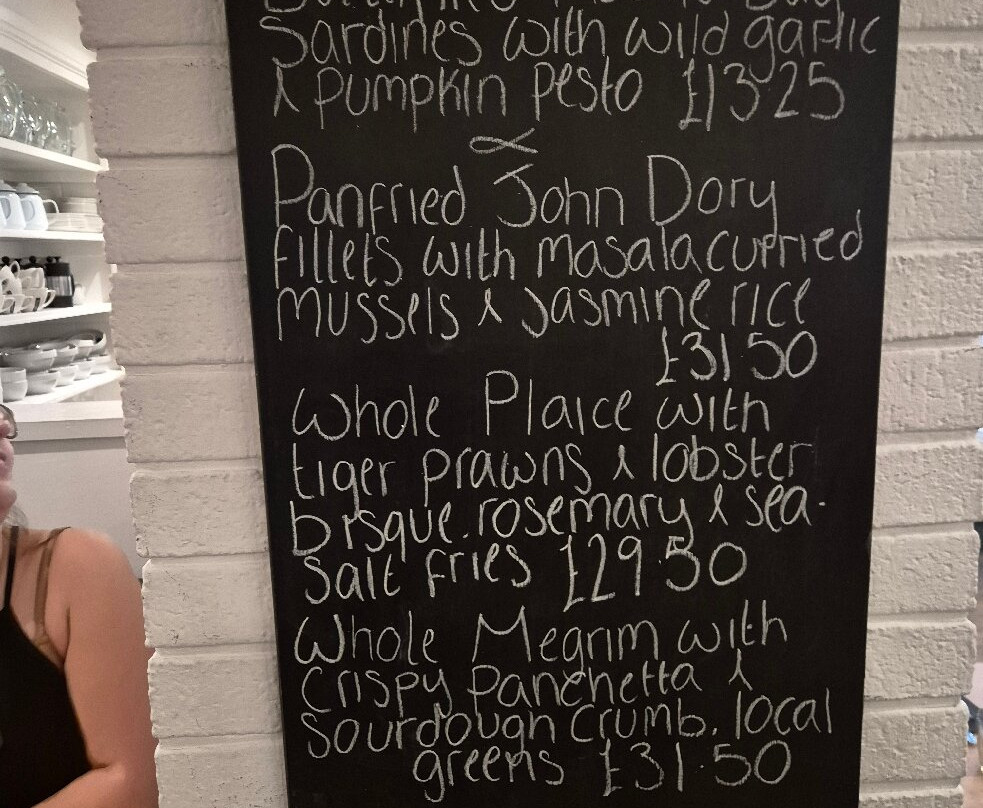 Sardines with wild garlic
& pumpkin pesto £13.25
Panfried John Dory
fillets with masala curried
mussels & jasmine rice
£31.50
Whole Plaice with
tiger prawns & lobster
bisque. rosemary & sea-
salt fries £29.50
Whole Megrim with
crispy Panchetta &
sourdough crumb. local
greens £31.50